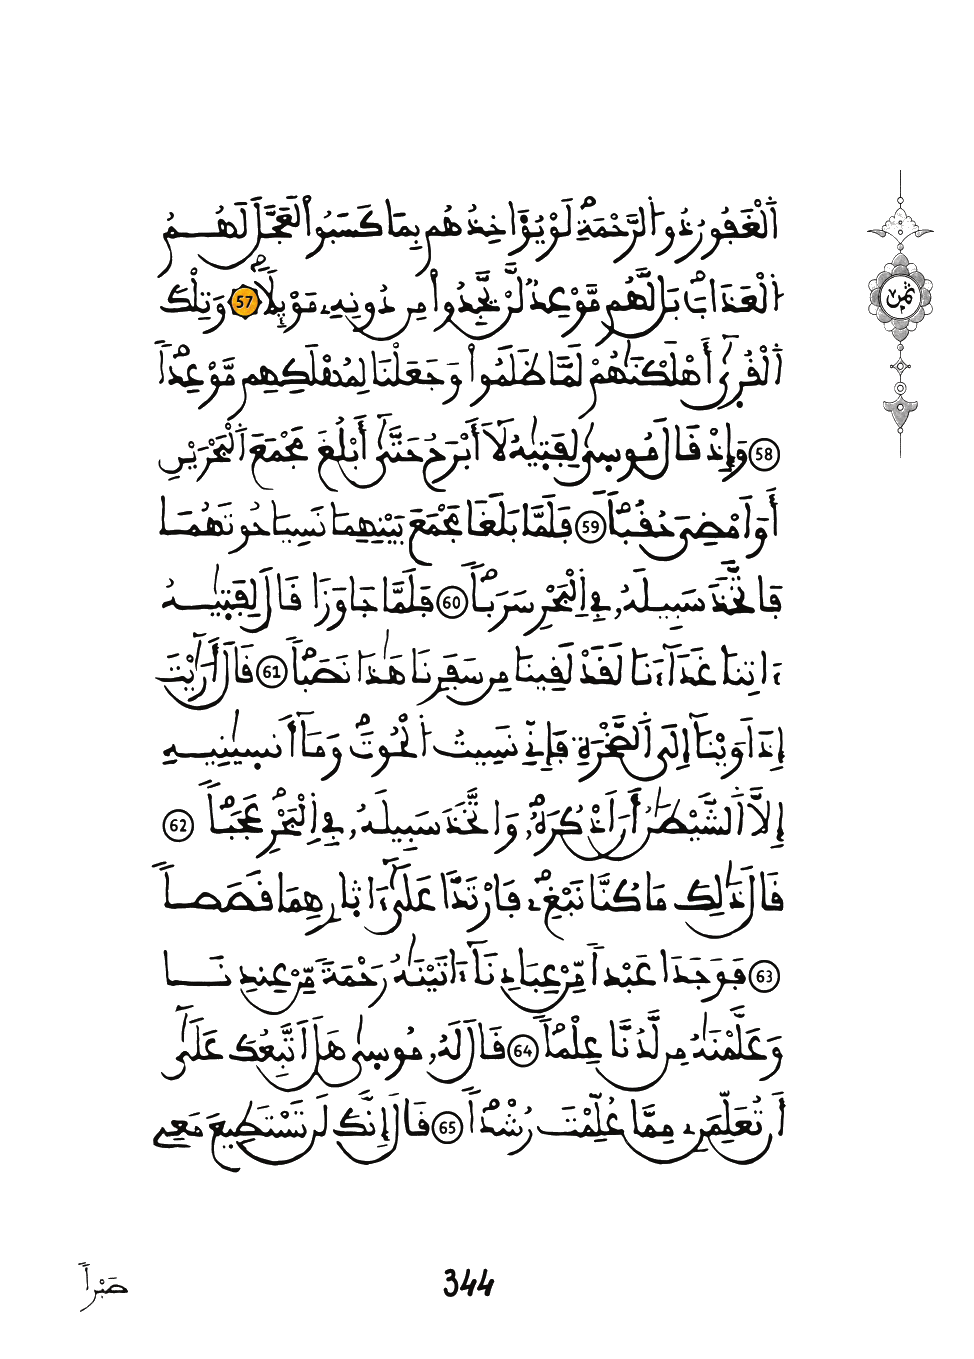 اَ۬لْغَفُورُ ذُو اُ۬لرَّحْمَةِۖ لَوْ يُؤَاخِذُهُم بِمَا كَسَبُواْ لَعَجَّلَ لَهُمُ
اُ۬لْعَذَابَۖ بَل لَّهُم مَّوْعِدٞ لَّنْ يَّجِدُواْ مِن دُونِهِۦ مَوْئِلاٗۖ 57 وَتِلْكَ
اَ۬لْقُر۪يٰٓ أَهْلَكْنَٰهُمْ لَمَّا ظَلَمُواْ وَجَعَلْنَا لِمُهْلَكِهِم مَّوْعِداٗۖ
58 وَإِذْ قَالَ مُوس۪يٰ لِفَت۪يٰهُ لَآ أَبْرَحُ حَتَّيٰٓ أَبْلُغَ مَجْمَعَ اَ۬لْبَحْرَيْنِ
أَوَ اَمْضِيَ حُقُباٗۖ 59 فَلَمَّا بَلَغَا مَجْمَعَ بَيْنِهِمَا نَسِيَا حُوتَهُمَا
فَاتَّخَذَ سَبِيلَهُۥ فِے اِ۬لْبَحْرِ سَرَباٗۖ 60 فَلَمَّا جَاوَزَا قَالَ لِفَت۪يٰهُ
ءَاتِنَا غَدَآءَنَا لَقَدْ لَقِينَا مِن سَفَرِنَا هَٰذَا نَصَباٗۖ 61 قَالَ أَرَٰيْتَ
إِذَ اَوَيْنَآ إِلَي اَ۬لصَّخْرَةِ فَإِنِّے نَسِيتُ اُ۬لْحُوتَۖ وَمَآ أَنس۪يٰنِيهِ
إِلَّا اَ۬لشَّيْطَٰنُ أَنَ اَذْكُرَهُۥۖ وَاتَّخَذَ سَبِيلَهُۥ فِے اِ۬لْبَحْرِۖ عَجَباٗۖ 62
قَالَ ذَٰلِكَ مَا كُنَّا نَبْغِۦۖ فَارْتَدَّا عَلَيٰٓ ءَاث۪ارِهِمَا قَصَصاٗ
63 فَوَجَدَا عَبْداٗ مِّنْ عِبَادِنَآ ءَاتَيْنَٰهُ رَحْمَةٗ مِّنْ عِندِنَا
وَعَلَّمْنَٰهُ مِن لَّدُنَّا عِلْماٗۖ 64 قَالَ لَهُۥ مُوس۪يٰ هَلَ اَتَّبِعُكَ عَلَيٰٓ
أَن تُعَلِّمَنِۦ مِمَّا عُلِّمْتَ رُشْداٗۖ 65 قَالَ إِنَّكَ لَن تَسْتَطِيعَ مَعِے
ثمن
صَبْراٗ
344